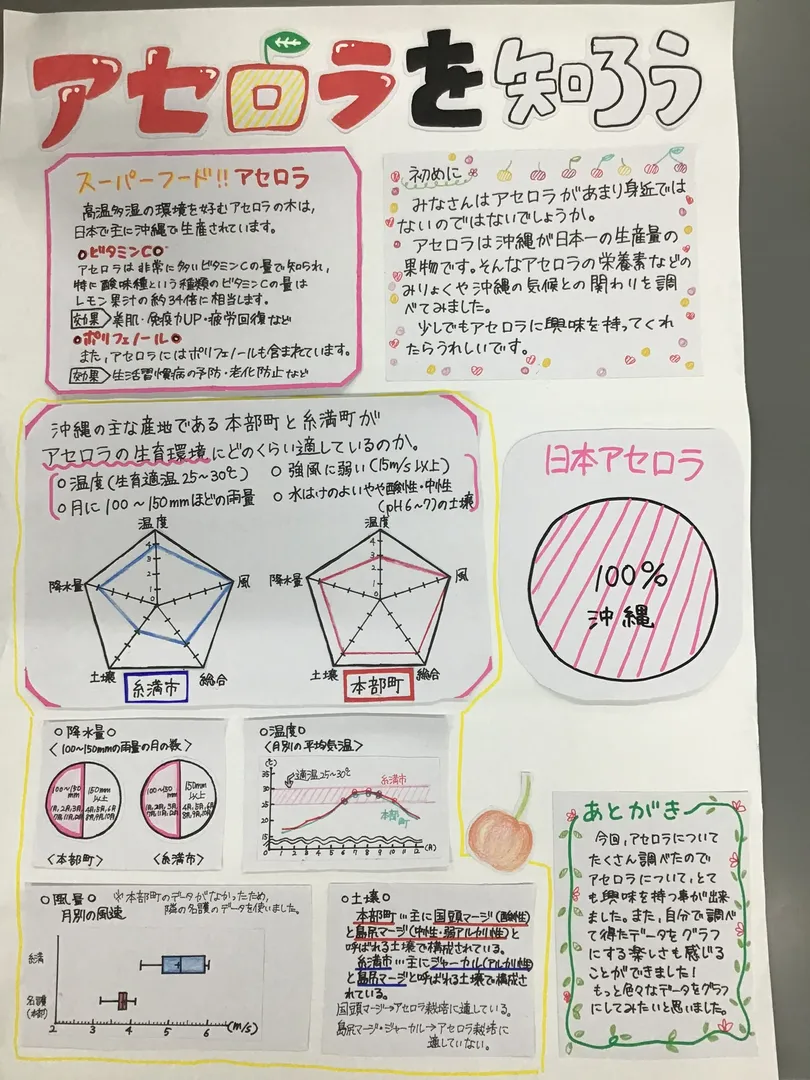 アセロラを知ろう
スーパーフード!! アセロラ
高温多湿の環境を好むアセロラの木は、
日本で主に沖縄で生産されています。
○ビタミンC○
アセロラは非常に多いビタミンCの量で知られ、
特に酸味種という種類のビタミンCの量は
レモン果汁の約34倍に相当します。
効果 美肌・免疫力UP・疲労回復など
○ポリフェノール○
また、アセロラにはポリフェノールも含まれています。
効果 生活習慣病の予防・老化防止など
初めに
みなさんはアセロラがあまり身近では
ないのではないでしょうか。
アセロラは沖縄が日本一の生産量の
果物です。そんなアセロラの栄養素などの
みりょくや沖縄の気候との関わりを調
べてみました。
少しでもアセロラに興味を持ってくれ
たらうれしいです。
沖縄の主な産地である本部町と糸満町が
アセロラの生育環境にどのくらい適しているのか。
○温度(生育適温25~30℃)
○強風に弱い(15m/s以上)
○月に100~150mmほどの雨量
○水はけのよいやや酸性・中性
(pH6~7)の土壌
温度
4
3
2
1
0
降水量
風
土壌
総合
糸満市
温度
4
3
2
1
0
降水量
風
土壌
総合
本部町
日本アセロラ
100%
沖縄
○降水量○
〈100~150mmの雨量の月の数〉
100~150
mm
1月,2月,3月,
7月,11月,12月
150mm
以上
4月,5月,6月
8月,9月,10月
〈本部町〉
100~150
mm
1月,2月,3月
7月,11月,12月
150mm
以上
4月,5月,6月
8月,9月,10月
〈糸満市〉
○温度○
〈月別の平均気温〉
(℃)
適温25~30℃
糸満市
本部町
35
30
25
20
15
0
1 2 3 4 5 6 7 8 9 10 11 12 (月)
○風量○
※本部町のデータがなかったため、
隣の名護のデータを使いました。
月別の風速
糸満
名護
(本部)
2 3 4 5 6 (m/s)
○土壌○
本部町…主に国頭マージ(酸性)
と島尻マージ(中性・弱アルカリ性)と
呼ばれる土壌で構成されている。
糸満市…主にジャーカル(アルカリ性)
と島尻マージと呼ばれる土壌で構成さ
れている。
国頭マージ→アセロラ栽培に適している。
島尻マージ・ジャーカル→アセロラ栽培に
適していない。
あとがき
今回、アセロラについて
たくさん調べたので
アセロラについて、とて
も興味を持つ事が出来
ました。また、自分で調べ
て得たデータをグラフ
にする楽しさも感じる
ことができました!
もっと色々なデータをグラフ
にしてみたいと思いました。